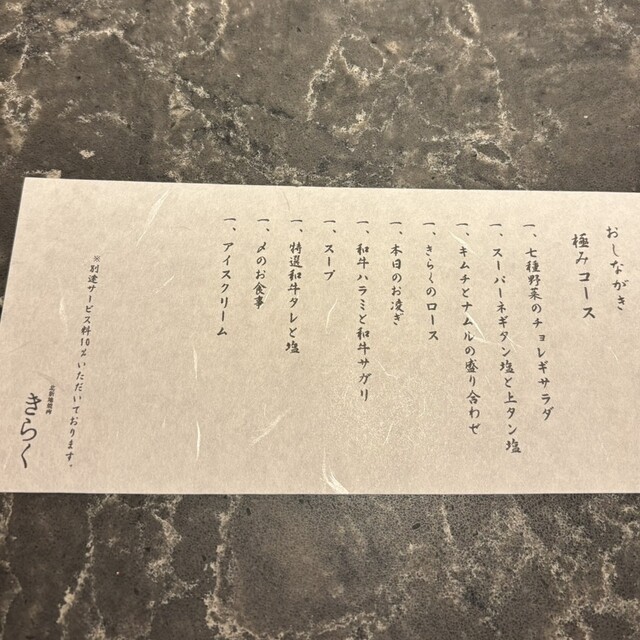 おしながき
極みコース
一、七種野菜のチョレギサラダ
一、スーパーネギタン塩と上タン塩
一、キムチとナムルの盛り合わせ
一、きらくのロース
一、本日のお凌ぎ
一、和牛ハラミと和牛サガリ
一、スープ
一、特選和牛タレと塩
一、〆のお食事
一、アイスクリーム
※別途サービス料10%いただいております。
きらく